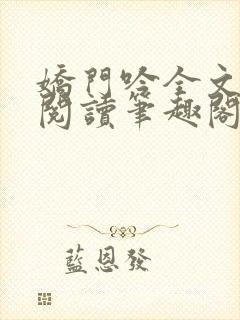 嬌門吟全文
閱讀筆趣閣
藍恩發